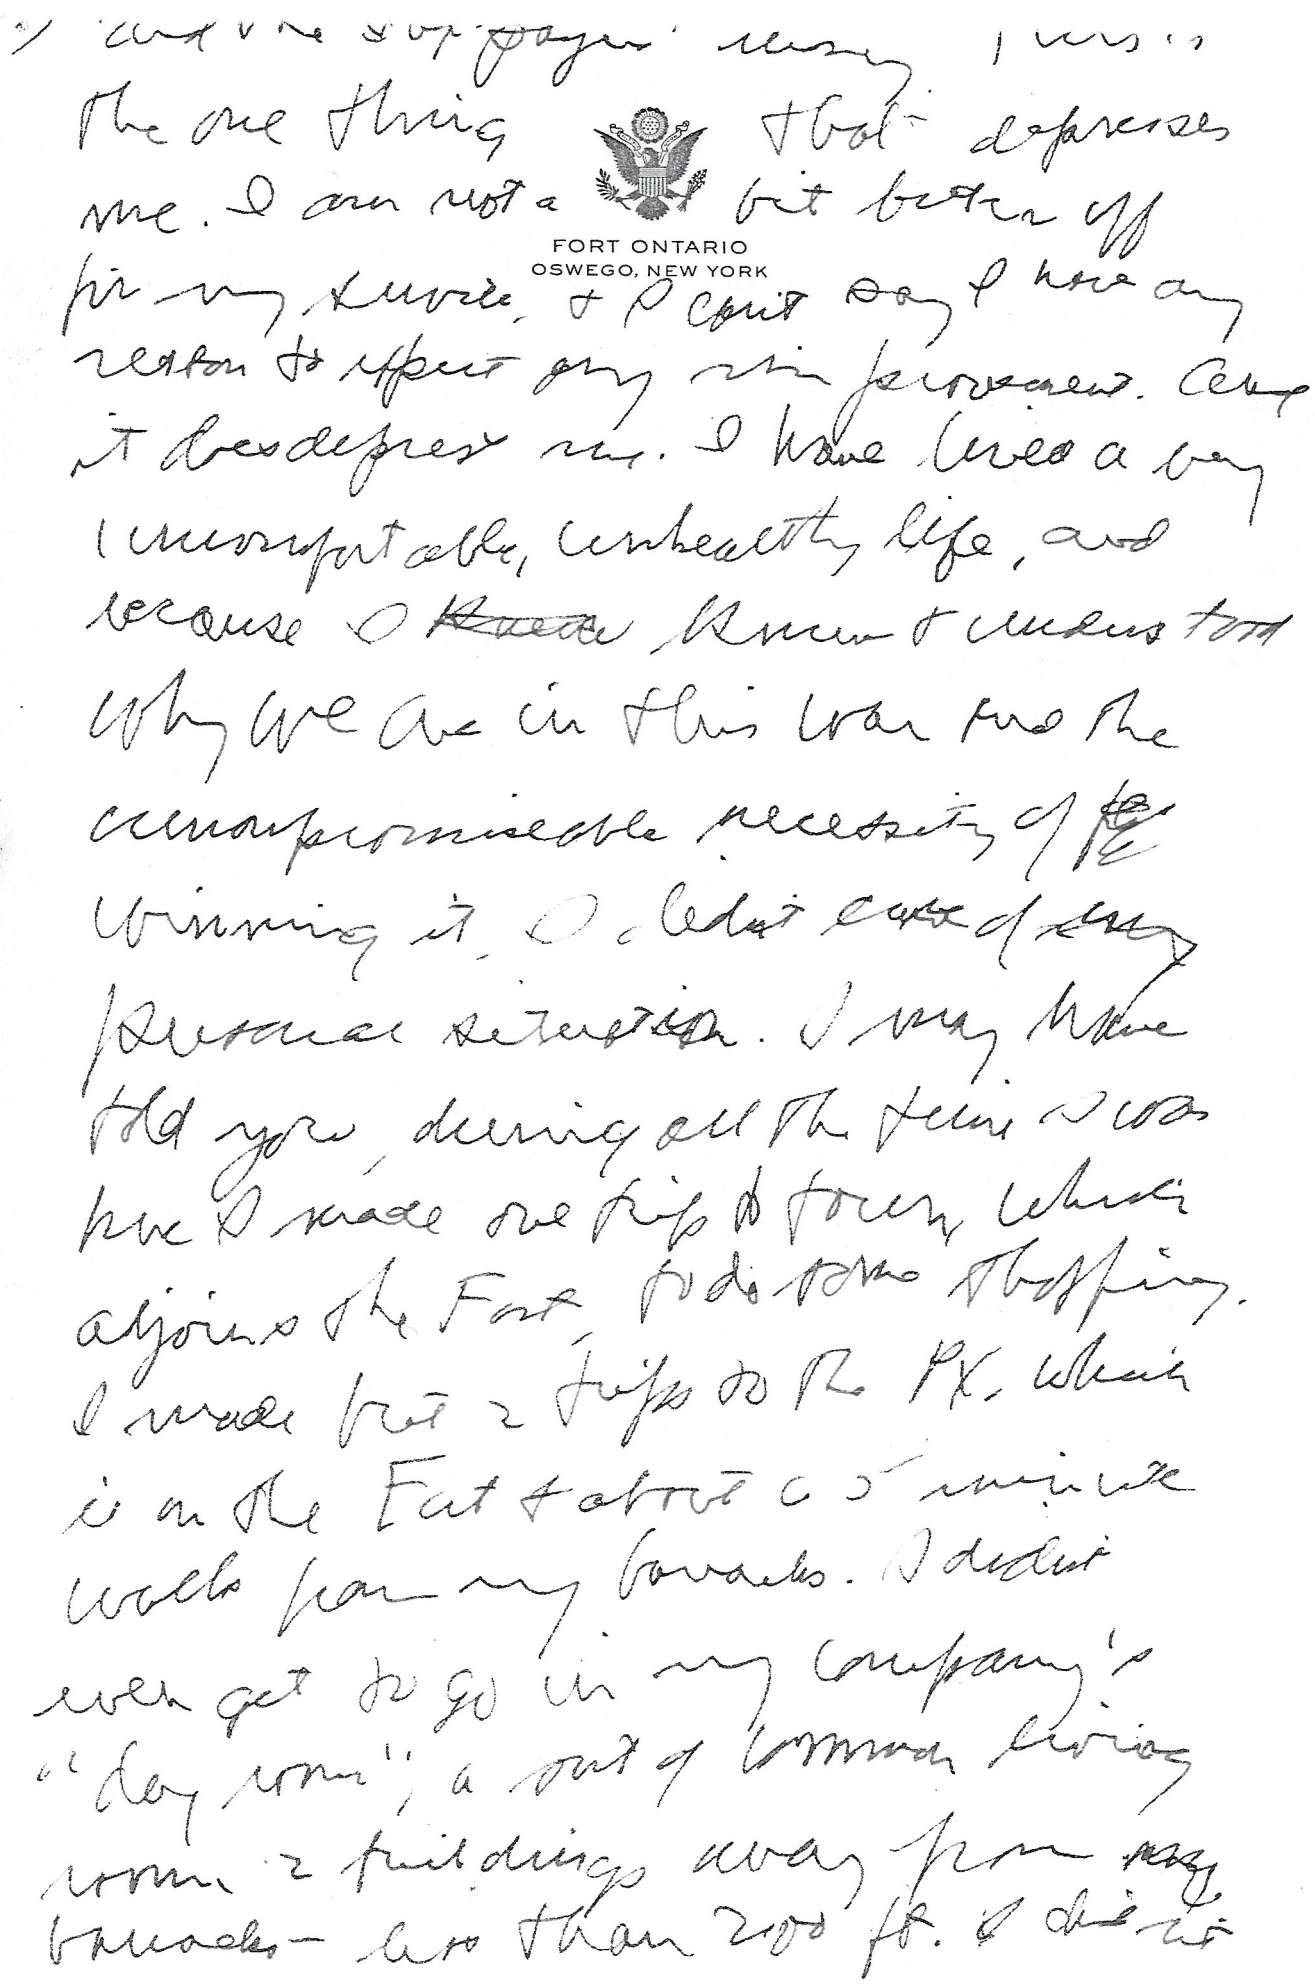 and the taxpayers' money. This is
the one thing that depresses
me. I am not a bit better off
FORT ONTARIO
OSWEGO, NEW YORK
for my service, & I can't say I have any
reason to expect any improvement. And
it does depress me. I have lived a very
uncomfortable, unhealthy life, and
because I knew & understood
why we are in this war and the
uncompromiseable necessity of
winning it, I didn't care of my
personal situation. I may have
told you, during all the time I was
here I made one trip to town, which
adjoins the Fort, to do some shopping.
I made but 2 trips to the PX, which
is on the Fort & about a 5 minute
walk from my barracks. I didn't
even get to go in my company's
"day room", a sort of common living
room 2 buildings away from my
barracks – less than 200 ft. I didn't